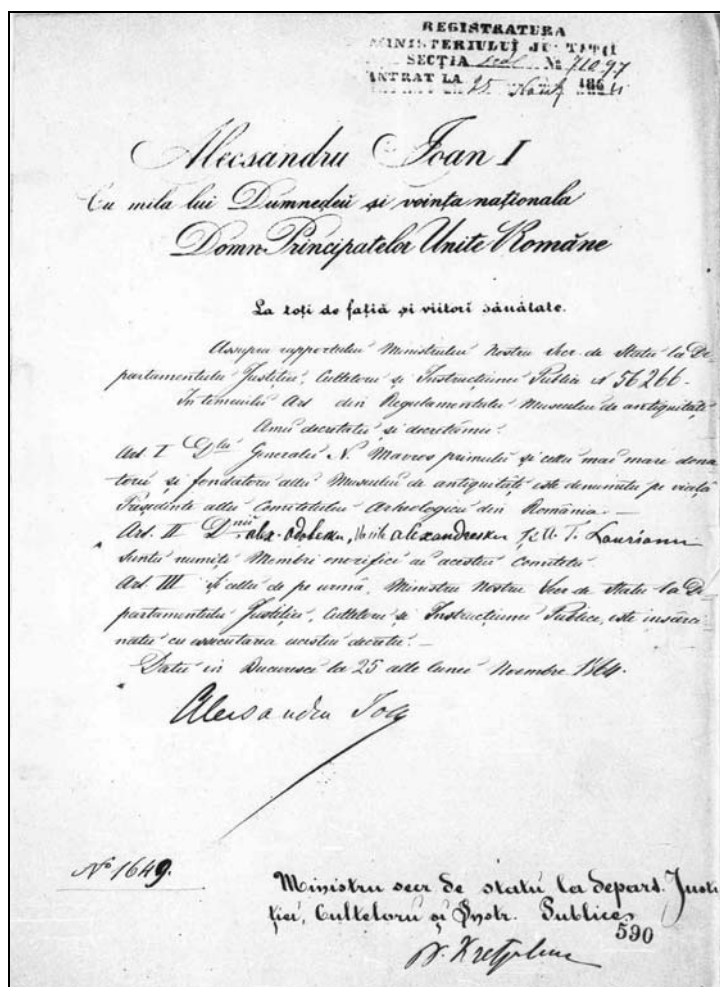 REGISTRATURA
MINISTERIULUI JUSTIȚII
SECȚIA No 71097
INTRAT LA 25 186
Alecsandru Ioan I
Cu mila lui Dumnedeŭ și voința naționala
Domn Principatelor Unite Române
La toți de fația și viitori sănătate.
Assupra rapportului Ministrului Nostru Secr. de Statu la De-
partamentulu Justiției, Cultelorŭ și Instrucțiunei Publice No 56266.
In temeiulu Art din Regulamentulu Museului de antiquități
Amu decretatu și decretămu:
Art. I Dlu Generalu N. Mavros primulu și cellu mai mare dona
torŭ și fondatorŭ allu Museului de antiquități este denumitu pe viață
Președinte allu Comitetului Archeologicŭ din România.—
Art. II Dnii alx. odobesku, alexandresku și A. T. Laurianu
suntu numiți Membri onorifici ai acestui Comitetu
Art. III și cellu de pe urmă, Ministru Nostru Secr. de Statu la De
partamentulu Justiției, Cultelorŭ și Instrucțiunei Publice, este însărci
natu cu essecutarea acestui decretu.—
Datu in Bucuresci la 25 alle lunei Noembre 1864.
Alecsandru Ioan
No 1649.
Ministru secr. de statŭ la depart. Justi
ției, Cultelorŭ și Instr. Publice,
590